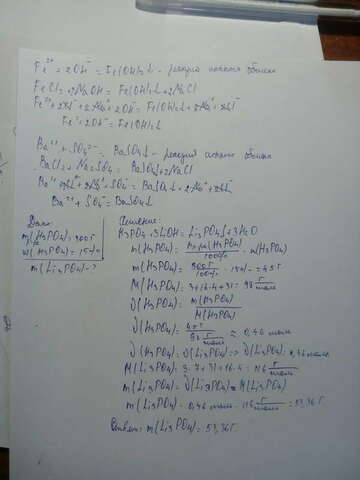 Fe²⁺ + 2OH⁻ = Fe(OH)₂↓ - реакция ионного обмена
FeCl₂ + 2NaOH = Fe(OH)₂↓ + 2NaCl
Fe²⁺ + 2Cl⁻ + 2Na⁺ + 2OH⁻ = Fe(OH)₂↓ + 2Na⁺ + 2Cl⁻
Fe²⁺ + 2OH⁻ = Fe(OH)₂↓
Ba²⁺ + SO₄²⁻ = BaSO₄↓ - реакция ионного обмена
BaCl₂ + Na₂SO₄ = BaSO₄↓ + 2NaCl
Ba²⁺ + 2Cl⁻ + 2Na⁺ + SO₄²⁻ = BaSO₄↓ + 2Na⁺ + 2Cl⁻
Ba²⁺ + SO₄²⁻ = BaSO₄↓
Дано:
(H₃PO₄) = 300г
w(H₃PO₄) = 15%
m(Li₃PO₄) - ?
Решение:
H₃PO₄ + 3LiOH = Li₃PO₄↓ + 3H₂O
m(H₃PO₄) = (H₃PO₄)/100% · w(H₃PO₄)
m(H₃PO₄) = 300г/100% · 15% = 45г
M(H₃PO₄) = 3 + 16·4 + 31 = 98 г/моль
ϑ(H₃PO₄) = m(H₃PO₄)/M(H₃PO₄)
ϑ(H₃PO₄) = 45г/98 г/моль ≈ 0,46 моль
ϑ(H₃PO₄) = ϑ(Li₃PO₄) => ϑ(Li₃PO₄) = 0,46 моль
M(Li₃PO₄) = 3·7 + 31 + 16·4 = 116 г/моль
m(Li₃PO₄) = ϑ(Li₃PO₄) · M(Li₃PO₄)
m(Li₃PO₄) = 0,46 моль · 116 г/моль = 53,36г
Ответ: m(Li₃PO₄) = 53,36г.